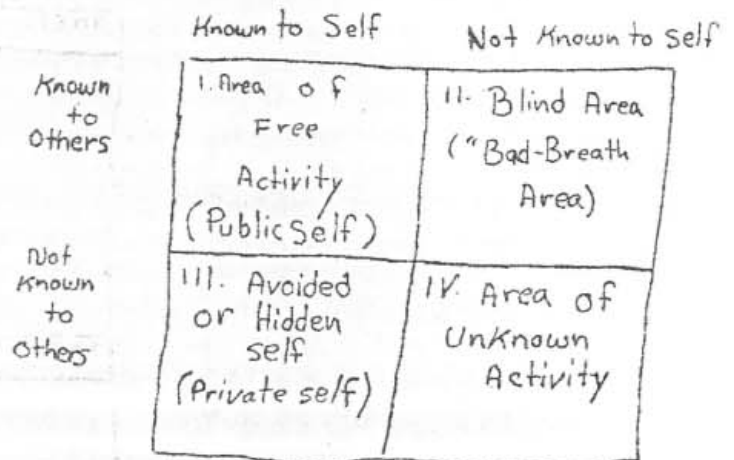 Known to Self
Not Known to Self
Known
to
Others
I. Area of
Free
Activity
(Public Self)
II. Blind Area
("Bad-Breath
Area)
Not
Known
to
others
III. Avoided
or Hidden
self
(Private self)
IV. Area of
Unknown
Activity